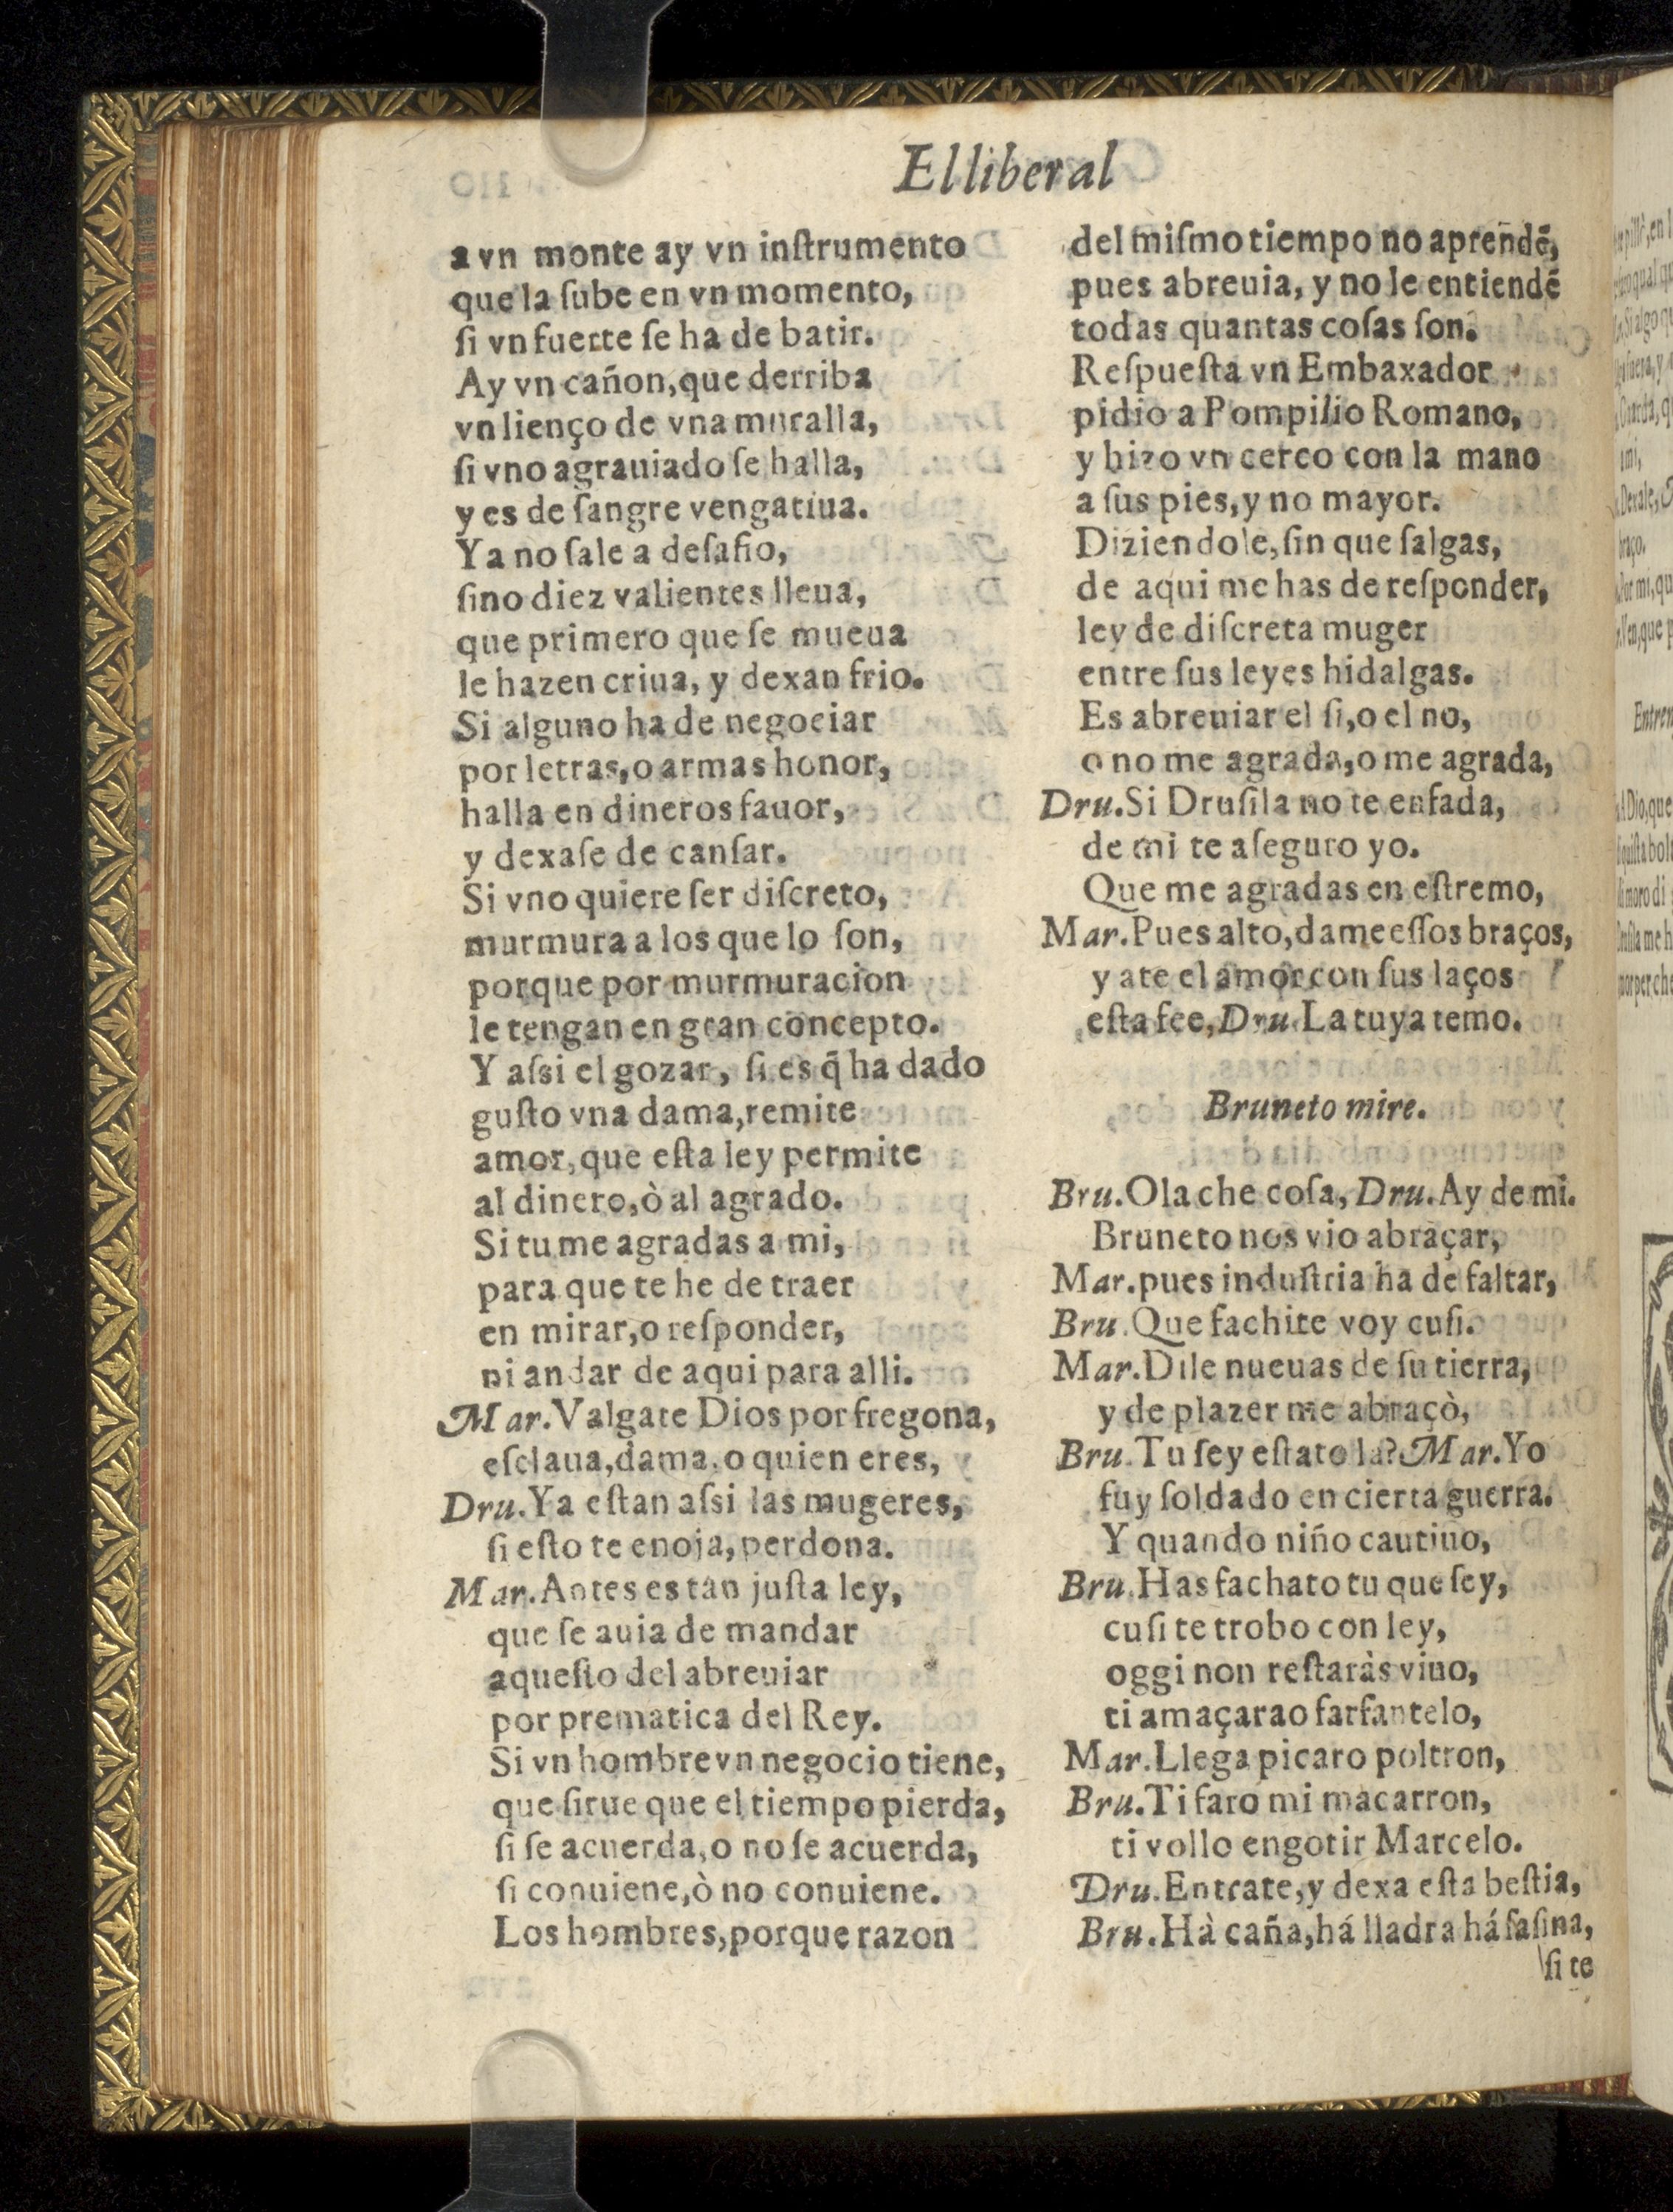 El liberal
a vn monte ay vn inſtrumento
que la ſube en vn momento,
ſi vn fuerte ſe ha de batir.
Ay vn cañon, que derriba
vn lienço de vna muralla,
ſi vno agrauiado ſe halla,
y es de ſangre vengatiua.
Ya no ſale a deſafio,
ſino diez valientes lleua,
que primero que ſe mueua
le hazen criua, y dexan frio.
Si alguno ha de negociar
por letras, o armas honor,
halla en dineros fauor,
y dexaſe de canſar.
Si vno quiere ſer diſcreto,
murmura a los que lo ſon,
porque por murmuracion
le tengan en gran concepto.
Y aſsi el gozar, ſi es q̃ ha dado
guſto vna dama, remite
amor, que eſta ley permite
al dinero, ò al agrado.
Si tu me agradas a mi,
para que te he de traer
en mirar, o reſponder,
ni andar de aqui para alli.
Mar. Valgate Dios por fregona,
eſclaua, dama, o quien eres,
Dru. Ya eſtan aſsi las mugeres,
ſi eſto te enoja, perdona.
Mar. Antes es tan juſta ley,
que ſe auia de mandar
aqueſto del abreuiar
por prematica del Rey.
Si vn hombre vn negocio tiene,
que ſirue que el tiempo pierda,
ſi ſe acuerda, o no ſe acuerda,
ſi conuiene, ò no conuiene.
Los hombres, porque razon
del miſmo tiempo no aprendẽ,
pues abreuia, y no le entiendẽ
todas quantas coſas ſon.
Reſpueſta vn Embaxador
pidio a Pompilio Romano,
y hizo vn cerco con la mano
a ſus pies, y no mayor.
Diziendole, ſin que ſalgas,
de aqui me has de reſponder,
ley de diſcreta muger
entre ſus leyes hidalgas.
Es abreuiar el ſi, o el no,
o no me agrada, o me agrada,
Dru. Si Druſila no te enfada,
de mi te aſeguro yo.
Que me agradas en eſtremo,
Mar. Pues alto, dame eſſos braços,
y ate el amor con ſus laços
eſta fee, Dru. La tuya temo.
Bruneto mire.
Bru. Ola che coſa, Dru. Ay de mi.
Bruneto nos vio abraçar,
Mar. pues induſtria ha de faltar,
Bru. Que fachite voy cuſi.
Mar. Dile nueuas de ſu tierra,
y de plazer me abraçò,
Bru. Tu ſey eſtato la? Mar. Yo
fuy ſoldado en cierta guerra.
Y quando niño cautiuo,
Bru. Has fachato tu que ſey,
cuſi te trobo con ley,
oggi non reſtaràs viuo,
ti amaçarao farfantelo,
Mar. Llega picaro poltron,
Bru. Ti faro mi macarron,
ti vollo engotir Marcelo.
Dru. Entrate, y dexa eſta beſtia,
Bru. Hà caña, há lladra há ſaſina,
ſi te